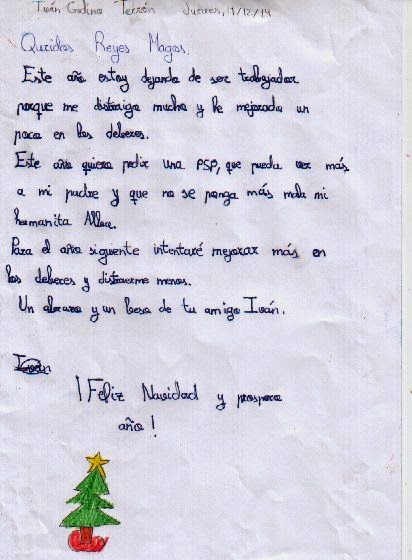 Iván Gadino Terrón Jueves, 11/12/14
Queridos Reyes Magos.
Este año estoy dejando de ser trabajador
porque me distraigo mucho y he mejorado un
poco en los deberes.
Este año quiero pedir una PSP, que pueda ver más
a mi padre y que no se ponga más mala mi
hermanita Alba.
Para el año siguiente intentaré mejorar más en
los deberes y distraerme menos.
Un abrazo y un beso de tu amigo Iván.
Iván
¡Feliz Navidad y prospero
año!